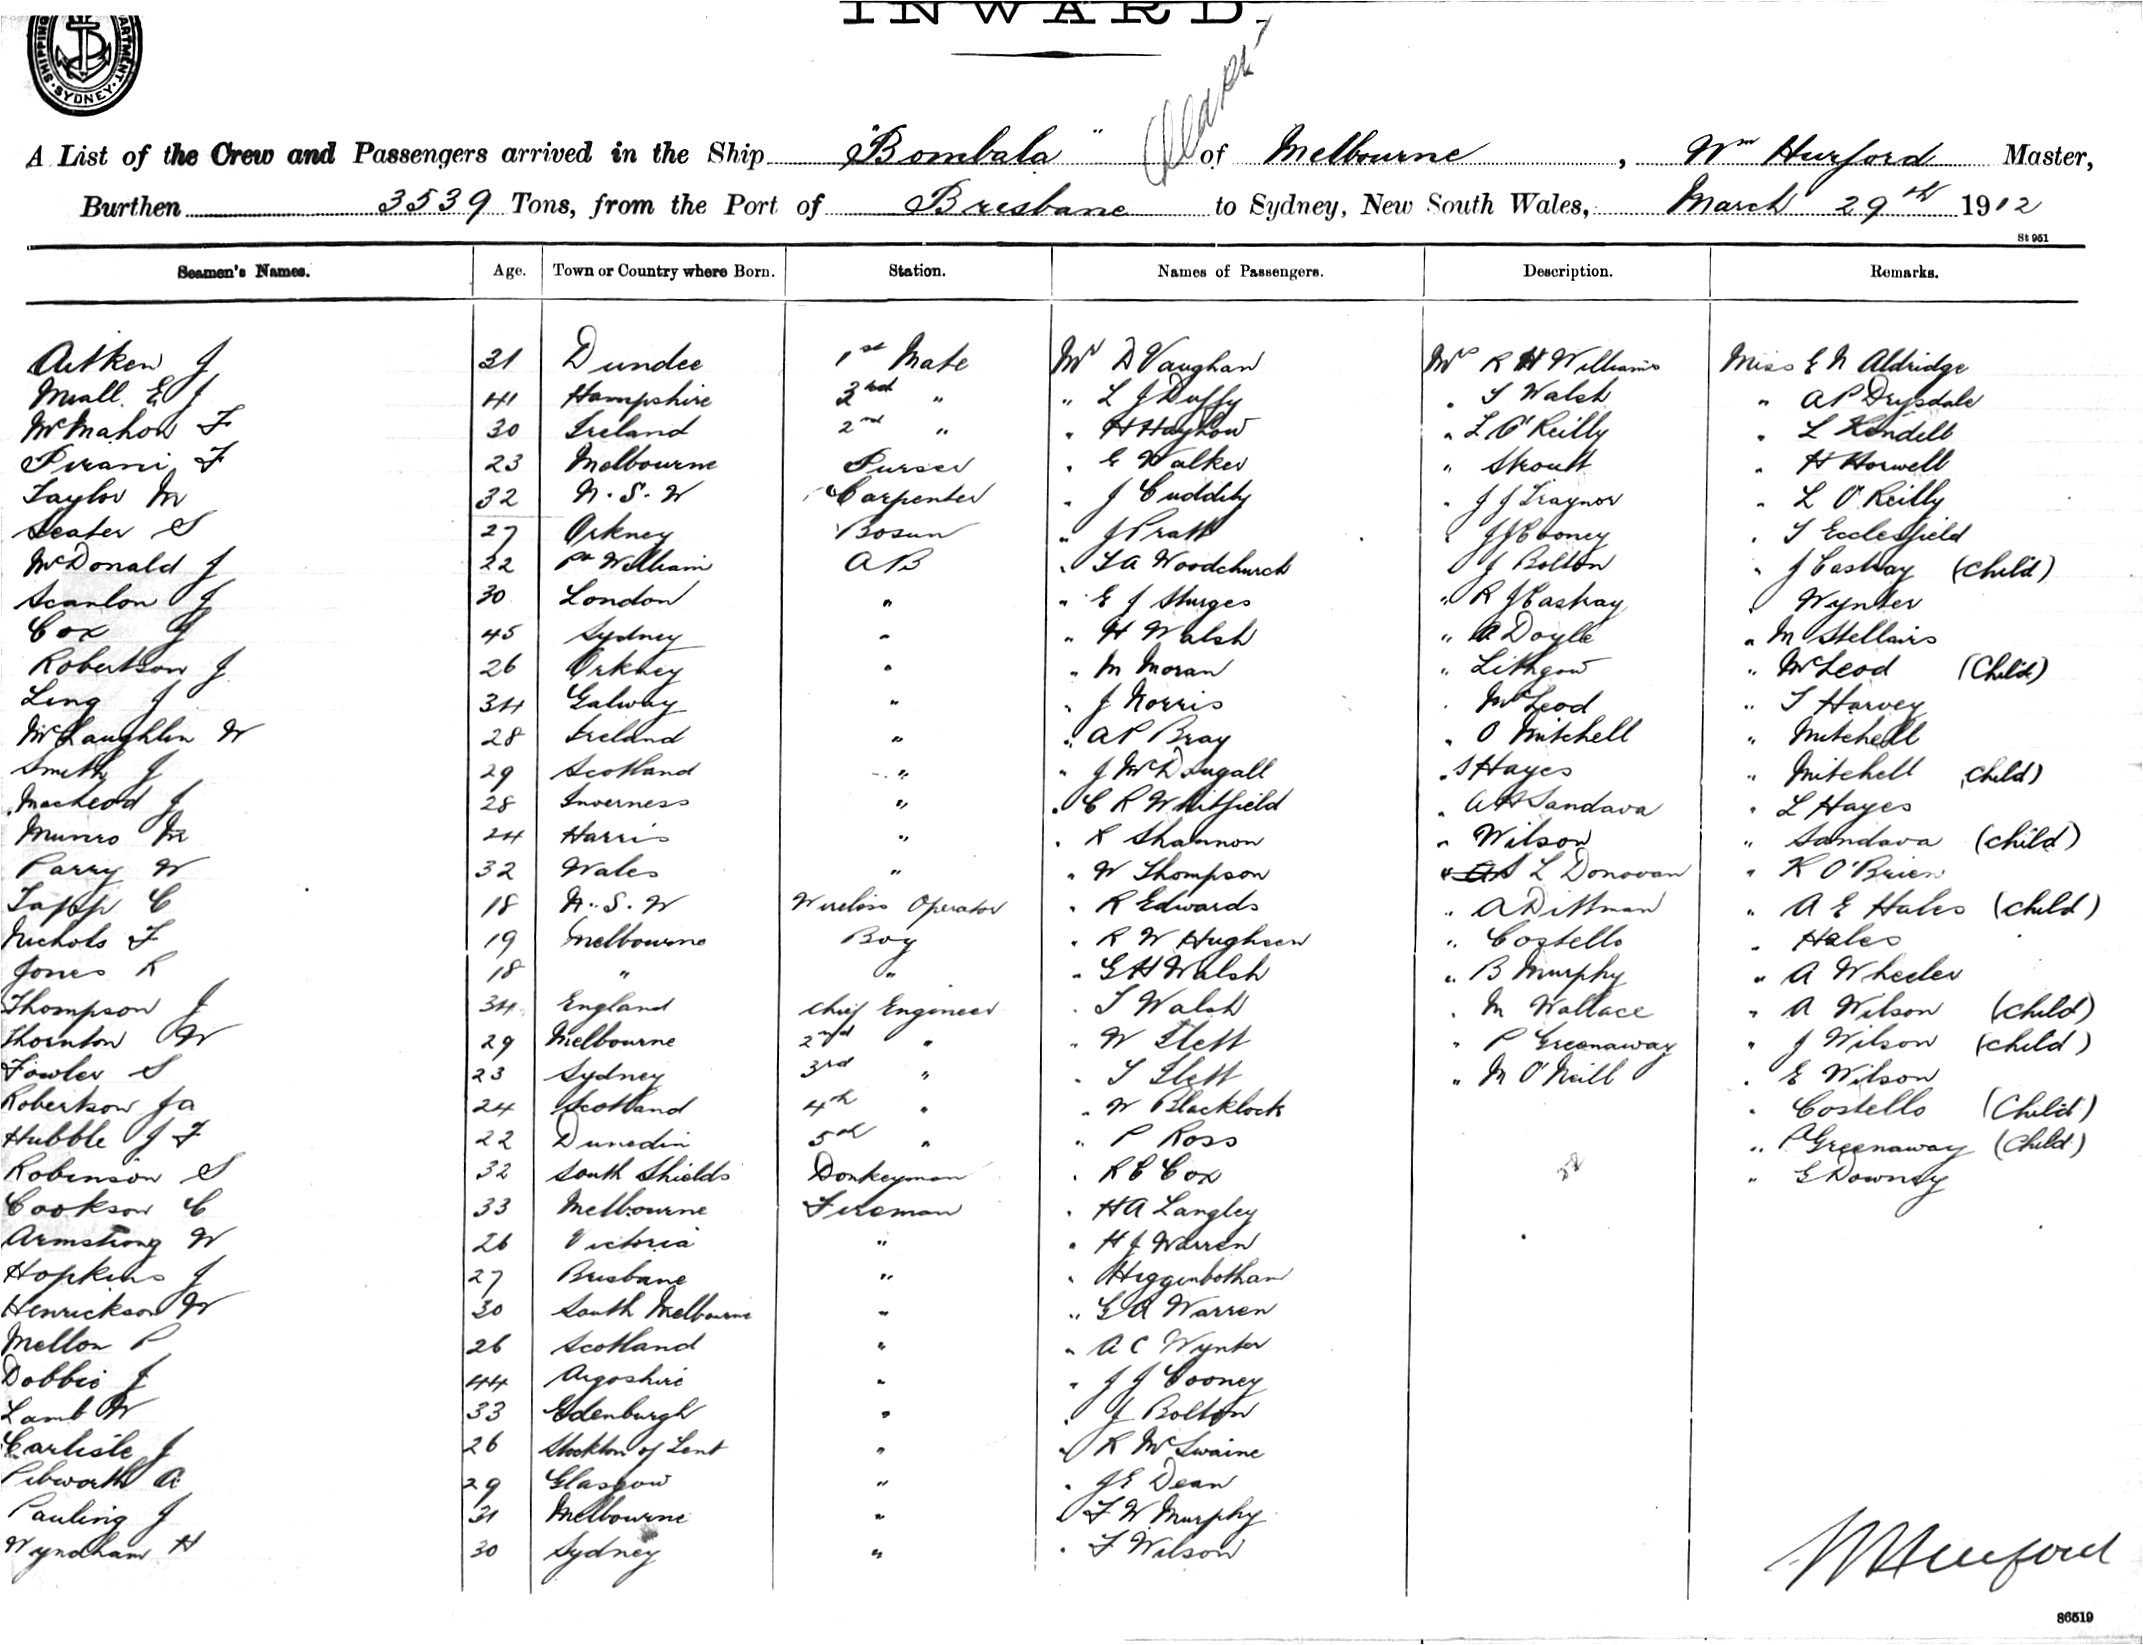 INWARD.
SHIPPING DEPARTMENT SYDNEY
A List of the Crew and Passengers arrived in the Ship "Bombala" of Melbourne, Wm Hurford Master,
Burthen 3539 Tons, from the Port of Brisbane to Sydney, New South Wales, March 29th 1912
St 951
Seamen's Names. Age. Town or Country where Born. Station. Names of Passengers. Description. Remarks.
Aitken J 31 Dundee 1st Mate Mr D Vaughan Mrs R H Williams Miss E N Aldridge
Miall E J 41 Hampshire 2nd " " L J Duffy " T Walsh " A P Drysdale
McMahon F 30 Ireland 2nd " " H Hayhow " L O'Reilly " L Kendell
Pirani F 23 Melbourne Purser " E Walker " Stroutt " H Horwell
Taylor M 32 N.S.W Carpenter " J Cuddihy " J J Traynor " L O'Reilly
Seater S 27 Orkney Bosun " J Pratt " J J Cooney " T Ecclesfield
McDonald J 22 Pt William A B " T A Woodchurch " J Bolton " J Cashay (child)
Scanlon J 30 London " " E J Sturges " R J Cashay " Wynter
Cox G 45 Sydney " " H Walsh " A Doyle " M Stellairs
Robertson J 26 Orkney " " M Moran " Lithgow " McLeod (Child)
Ling J 34 Galway " " J Norris " McLeod " T Harvey
McLaughlin W 28 Ireland " " A P Bray " O Mitchell " Mitchell
Smith J 29 Scotland " " J McDougall " S Hayes " Mitchell (child)
MacLeod J 28 Inverness " " C R Whitfield " A H Sandava " L Hayes
Munro M 24 Harris " " R Shannon " Wilson " Sandava (child)
Parry W 32 Wales " " W Thompson " S L Donovan " K O'Brien
Tapp C 18 N.S.W Wireless Operator " R Edwards " A Dittman " A E Hales (child)
Nichols F 19 Melbourne Boy " R W Hugheen " Costello " Hales
Jones R 18 " " " G H Walsh " B Murphy " A Wheeler
Thompson J 34 England Chief Engineer " T Walsh " M Wallace " A Wilson (child)
Thornton W 29 Melbourne 2nd " " W Slett " P Greenaway " J Wilson (child)
Fowler S 23 Sydney 3rd " " T Slett " M O'Neill " E Wilson
Robertson Ja 24 Scotland 4th " " W Blacklock " Costello (Child)
Hubble J F 22 Dunedin 5th " " P Ross " P Greenaway (child)
Robinson S 32 South Shields Donkeyman " R C Cox " E Downey
Cookson C 33 Melbourne Fireman " H A Langley
Armstrong W 26 Victoria " " H J Warren
Hopkins J 27 Brisbane " " Higginbotham
Henrickson W 30 South Melbourne " " G A Warren
Mellon P 26 Scotland " " A C Wynter
Dobbie J 44 Argoshire " " J J Cooney
Lamb W 33 Edenburgh " " J Bolton
Carlisle J 26 Stockton of Tent " " R McSwaine
Pibworth A 29 Glasgow " " J E Dean
Pauling J 31 Melbourne " " F W Murphy
Wyndham H 30 Sydney " " F Wilson
W Hurford
86519